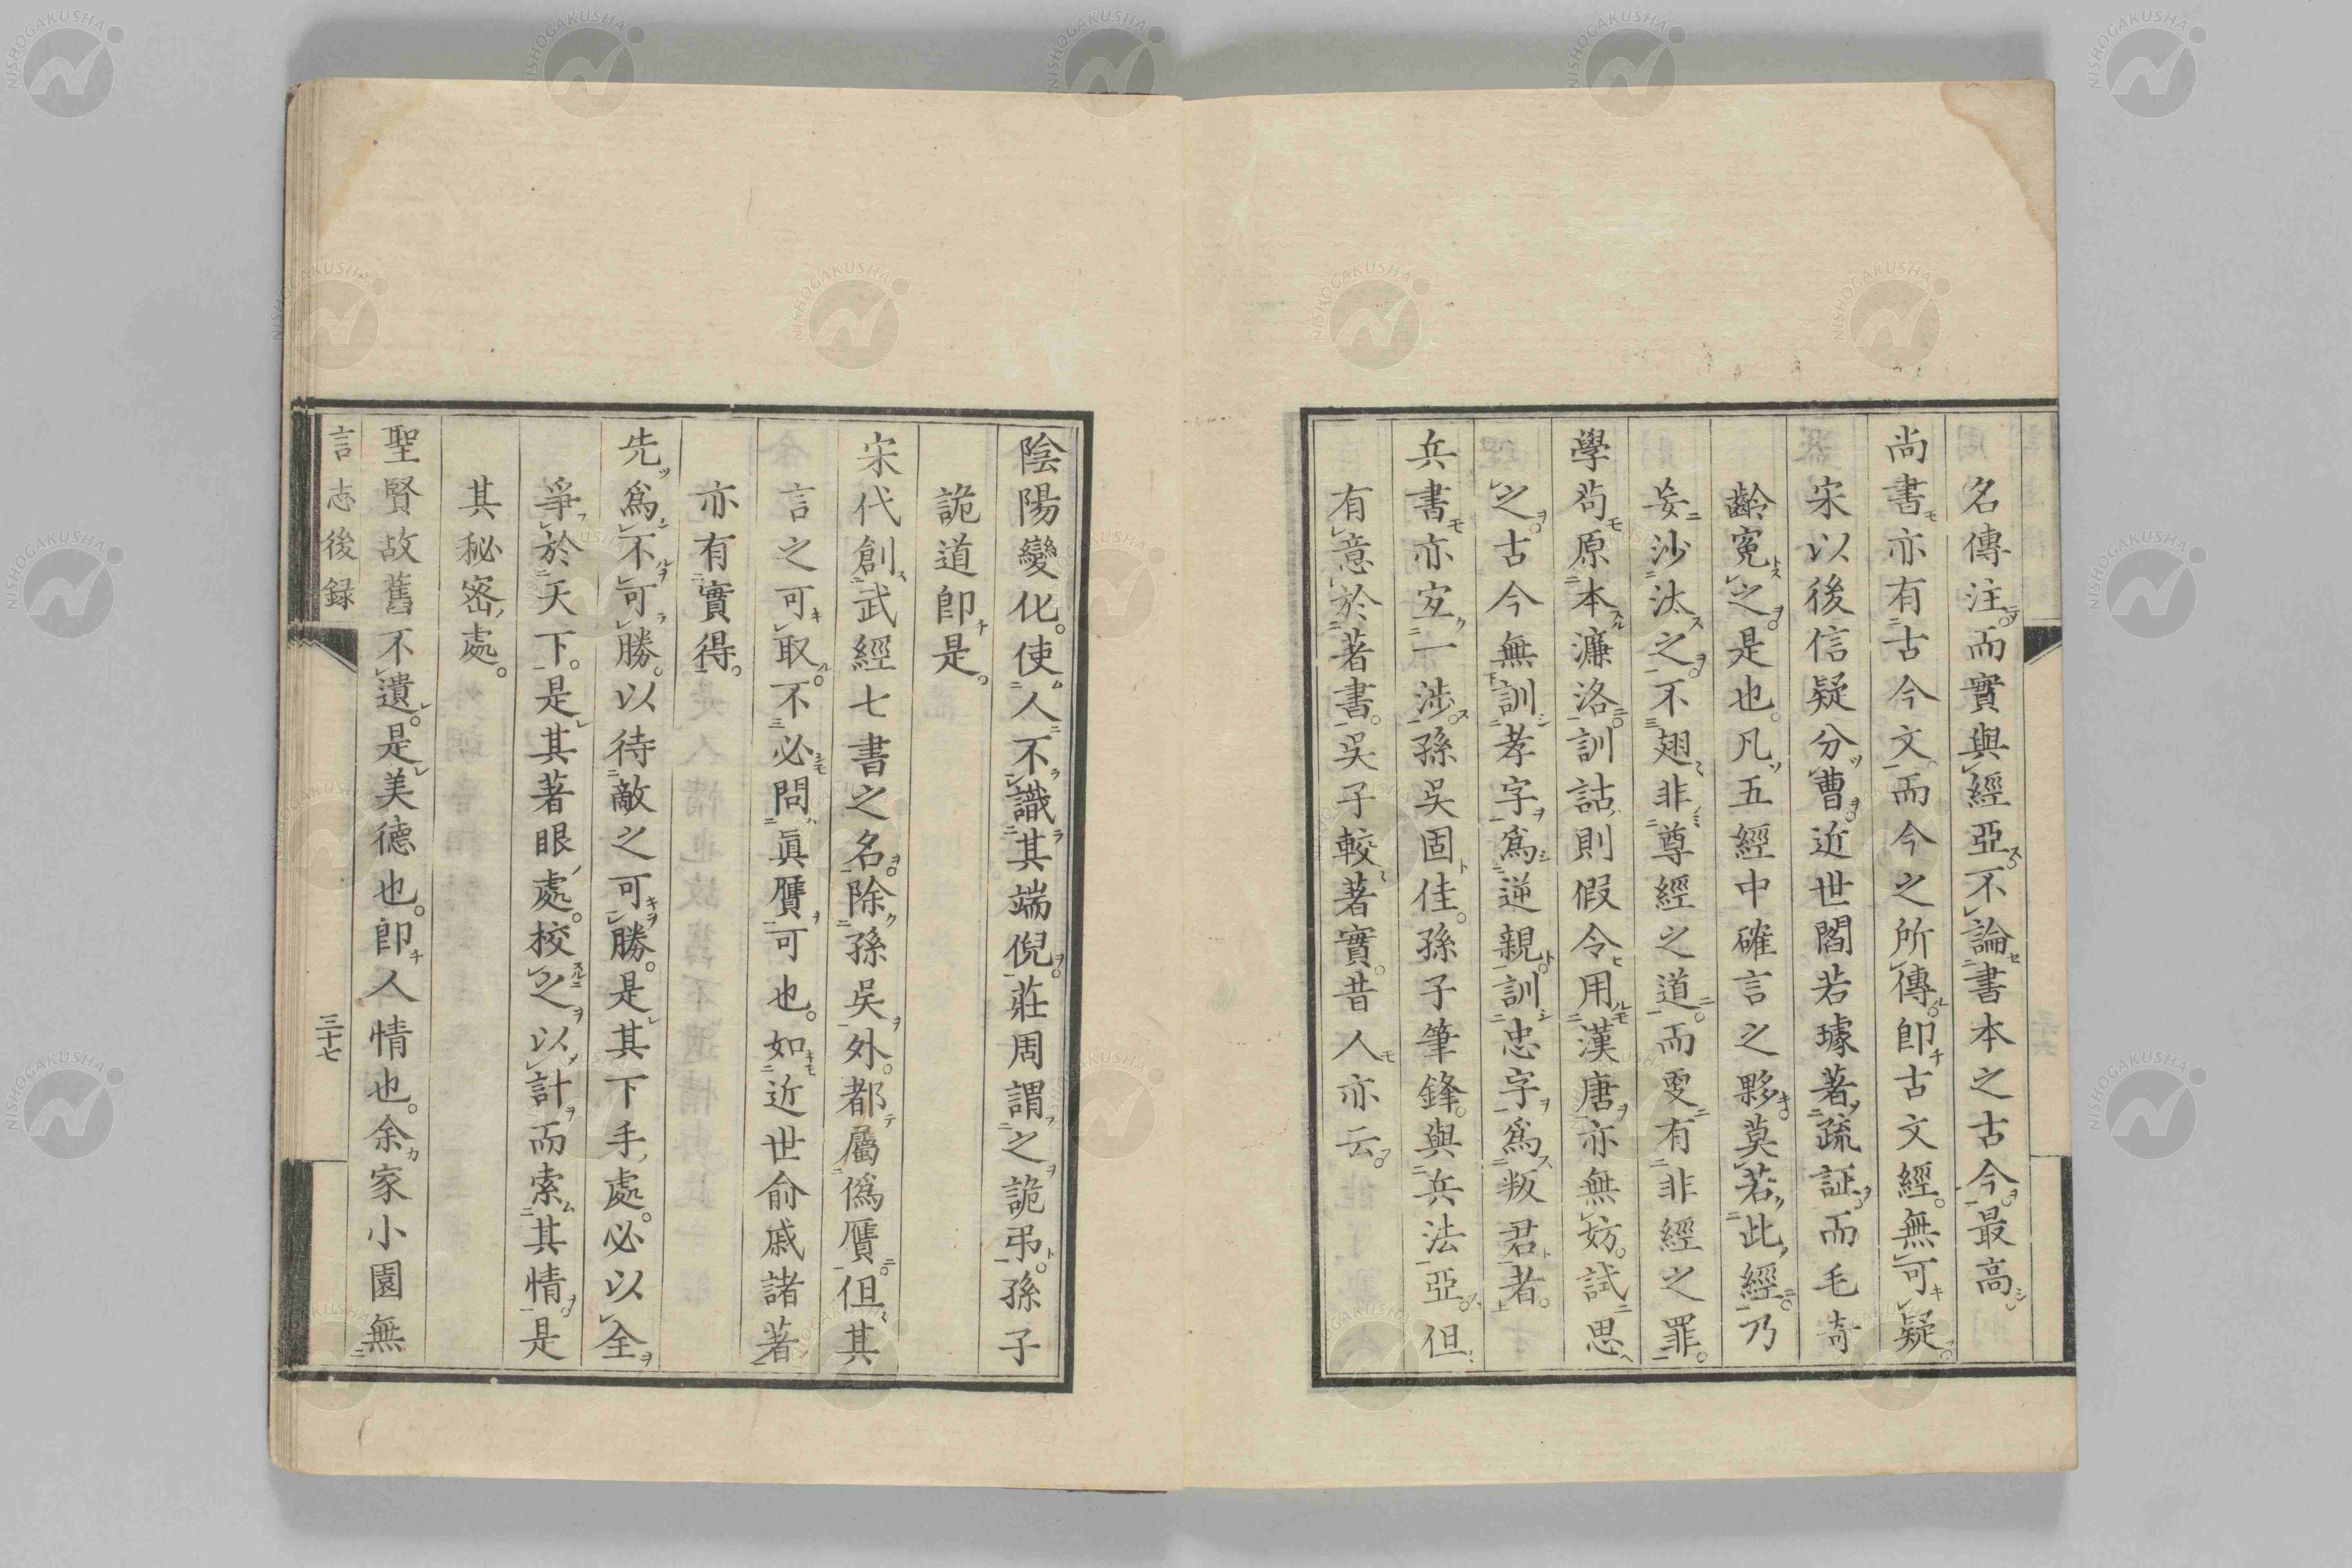 名傳注。而實與經亞。不論書本之古今。最高。
尚書亦有古今文。而今之所傳。卽古文經。無可疑。
宋以後信疑分曹。近世閻若璩著疏証。而毛奇
齡寃之。是也。凡五經中確言之夥。莫若此經。乃
妄沙汰之。不翅非尊經之道。而更有非經之罪。
學苟原本濂洛。訓詁則假令用漢唐亦無妨。試思
之。古今無訓孝字爲逆親。訓忠字爲叛君者。
兵書亦宜一涉。孫吳固佳。孫子筆鋒。與兵法亞。但
有意於著書。吳子較著實。昔人亦云。
陰陽變化。使人不識其端倪。莊周謂之詭弔。孫子
詭道卽是。
宋代創武經七書之名。除孫吳外。都屬僞贋。但其
言之可取。不必問眞贋可也。如近世俞戚諸著
亦有實得。
先爲不可勝。以待敵之可勝。是其下手處。必以全
爭於天下。是其著眼處。校之以計而索其情。是
其秘密處。
聖賢故舊不遺。是美德也。卽人情也。余家小園無
言志後録
三十七
NISHOGAKUSHA